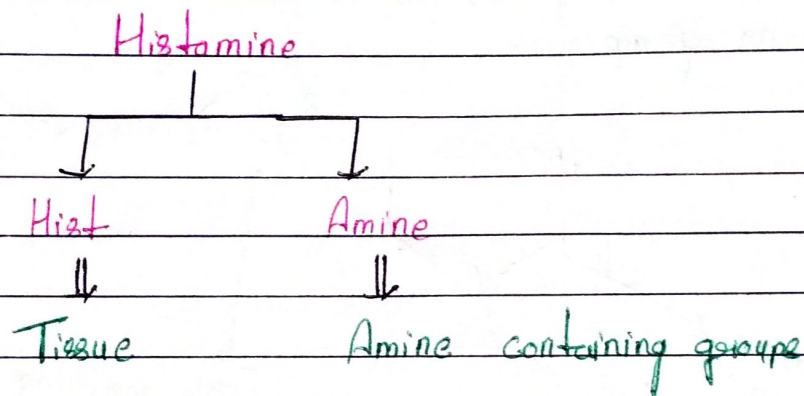 Histamine
Hist Amine
Tissue Amine containing groups